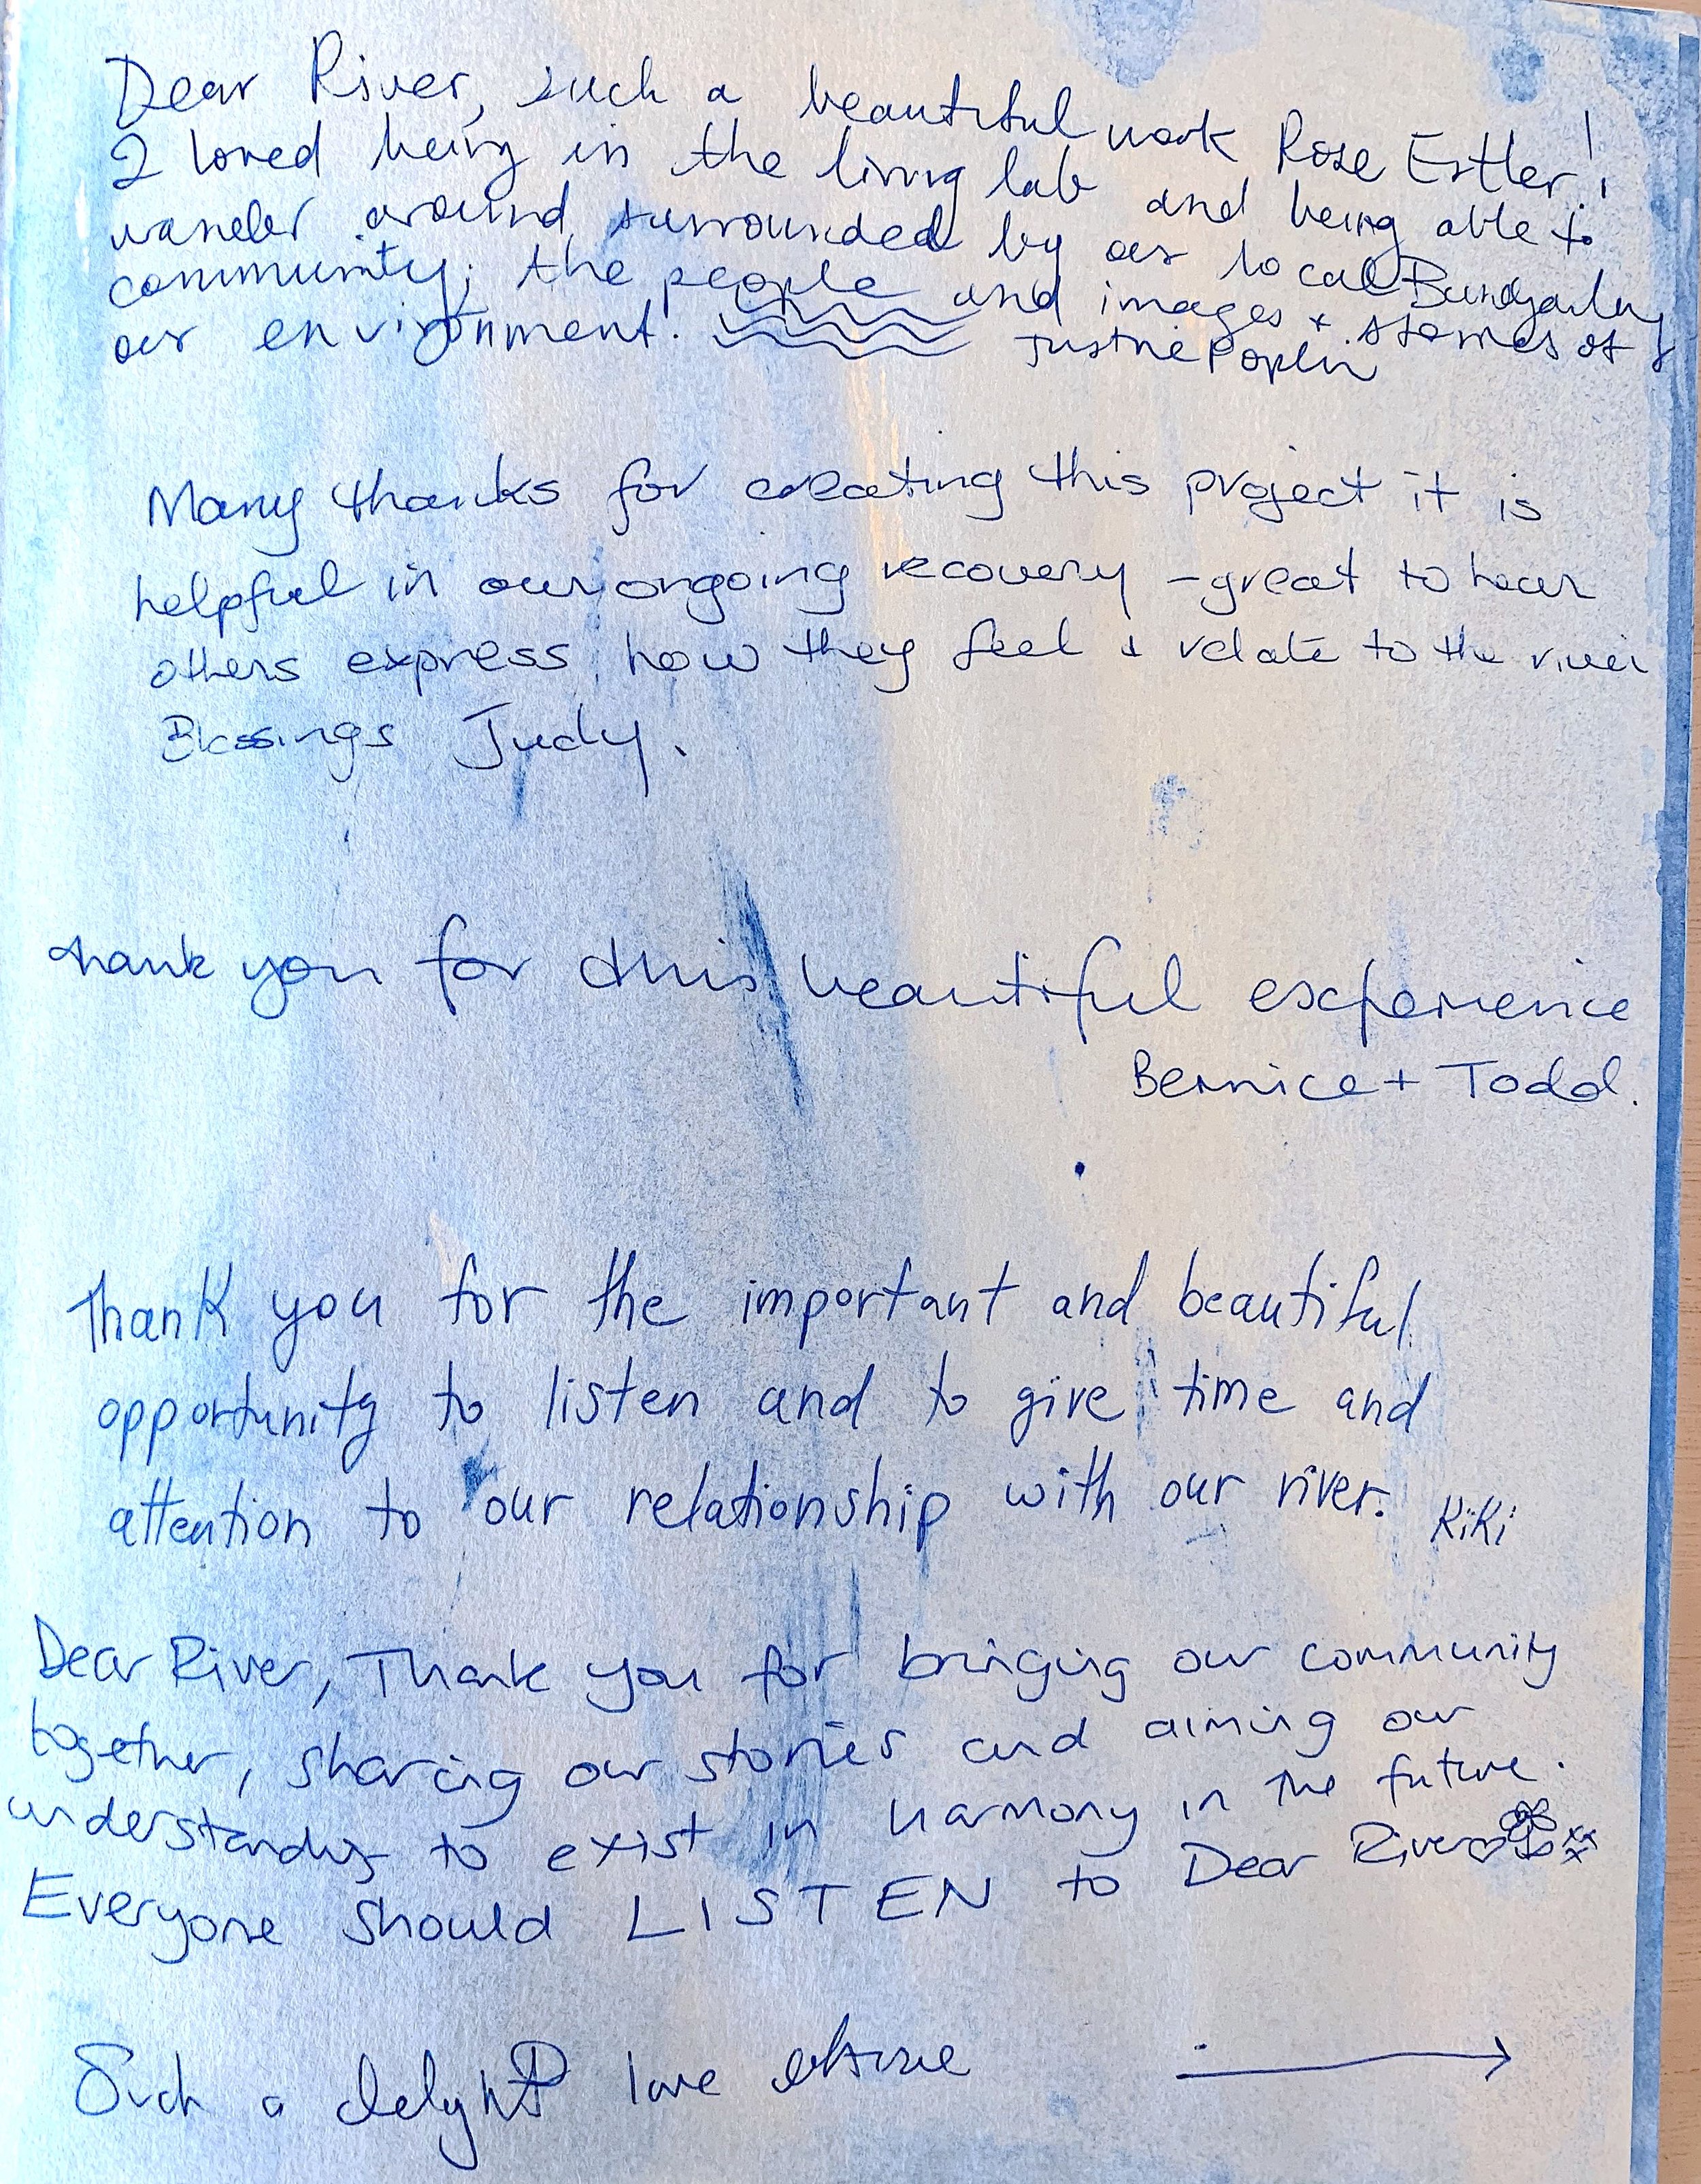 Dear River, such a beautiful work Rose Estler!
I loved being in the living lab and being able to
wander around surrounded by our local Bundjalung
community; the people and images + stories of
our environment!
Many thanks for creating this project it is
helpful in our ongoing recovery - great to hear
others express how they feel + relate to the river
Blessings Judy.
thank you for this beautiful experience
Bernice + Todd.
Thank you for the important and beautiful
opportunity to listen and to give time and
attention to our relationship with our river. KiKi
Dear River, Thank you for bringing our community
together, sharing our stories and aiming our
understanding to exist in harmony in the future.
Everyone should LISTEN to Dear River
Such a delight love